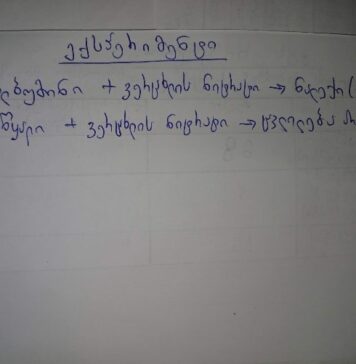 ექსპერიმენტი
ალბუმინი + ვერცხლის ნიტრატი → ნალექი (
წყალი + ვერცხლის ნიტრატი → ცვლილება არ